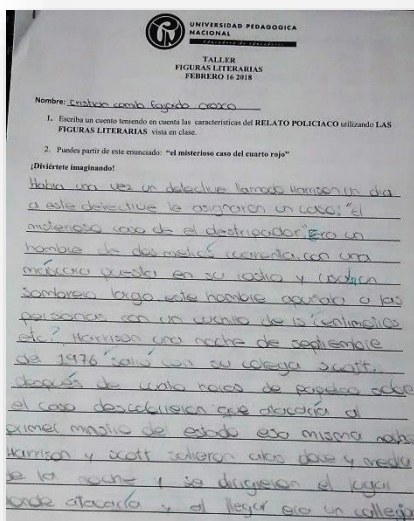 UNIVERSIDAD PEDAGOGICA
NACIONAL
Educadora de educadores
TALLER
FIGURAS LITERARIAS
FEBRERO 16 2018
Nombre: Cristian camilo Fajardo orozco
1. Escriba un cuento teniendo en cuenta las características del RELATO POLICIACO utilizando LAS
FIGURAS LITERARIAS vista en clase.
2. Puedes partir de este enunciado: “el misterioso caso del cuarto rojo”
¡Diviértete imaginando!
Habia una vez un detective llamado Harrison un dia
a este detective le asignaron un caso: "el
misterioso caso de el destripador". Era un
hombre de dos metros cuarenta, con una
mascara puesta en su rostro y con un
sombrero largo este hombre apuñala a las
personas con un cuchillo de 15 centimetros
etc. Harrison una noche de septiembre
de 1976 salió con su colega scott.
despues de horas de sobre
el caso descubrieron que atacaría al
primer ministro de estado esa misma noche
Harrison y scott salieron a las doce y media
de la noche y se dirigieron al lugar
donde atacaría y al llegar era un callejon